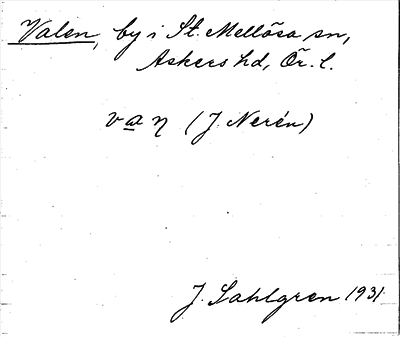 Valen, by i St. Mellösa sn,
Askers hd, Ör. l.
van (J. Nerén)
J. Sahlgren 1931